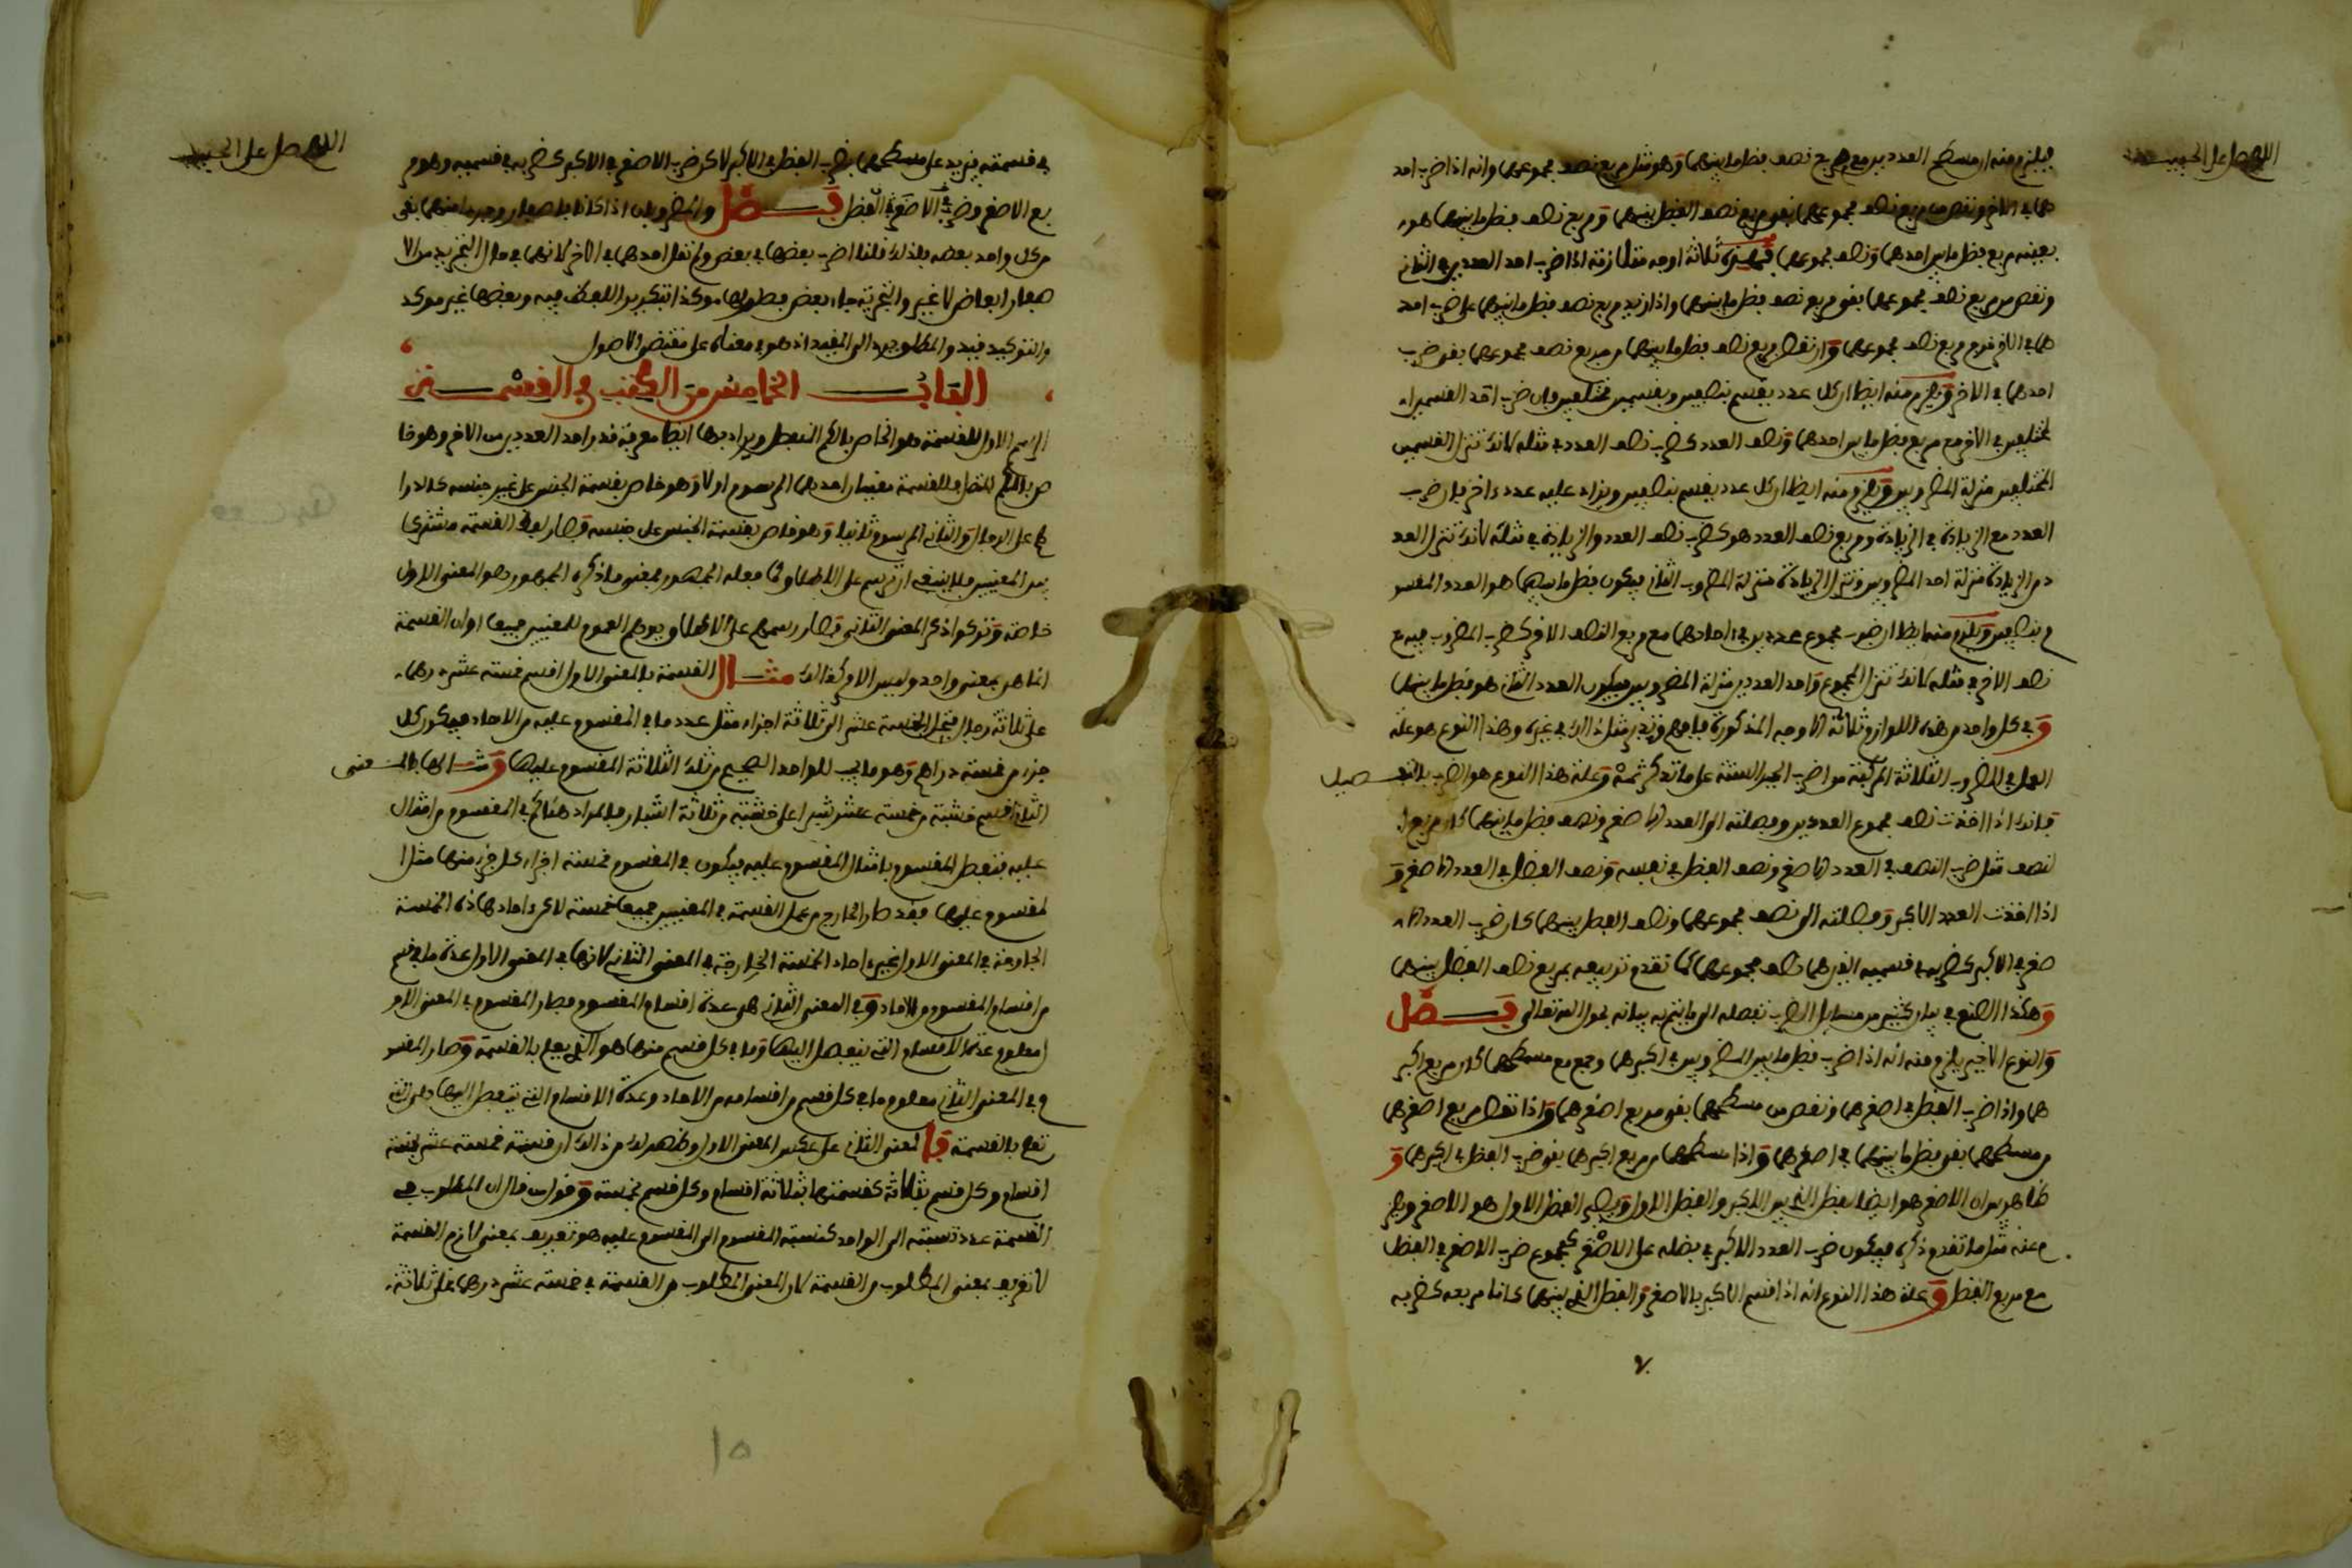 اللهم صل على الحبيب
فيلزم منه ان مسطح العددين مع مربع نصف فضل ما بينهما وهو مثل مربع نصف مجموعهما وانه اذا ضرب احد
هما في الاخر ونقص من مربع نصف مجموعهما بقي مربع نصف الفضل بينهما ومربع نصف فضل ما بينهما هو
بعينه مربع فضل ما بين احدهما ونصف مجموعهما فهذه ثلاثة اوجه متلازمة اذا ضرب احد العددين في الثاني
ونقص من مربع نصف مجموعهما بقي مربع نصف فضل ما بينهما واذا زيد مربع نصف فضل ما بينهما على ضرب احد
هما في الاخر خرج مربع نصف مجموعهما وان نقص مربع نصف فضل ما بينهما من مربع نصف مجموعهما بقي ضرب
احدهما في الاخر ويلزم منه ايضا ان كل عدد يقسم بنصفين وبقسمين مختلفين فان ضرب احد القسمين ا
لمختلفين في الاخر مع مربع فضل ما بين احدهما ونصف العدد كضرب نصف العدد في مثله لانك تنزل القسمين
المختلفين منزلة المضروبين ويلزم منه ايضا ان كل عدد يقسم بنصفين ويزاد عليه عدد ءاخر فان ضرب
العدد مع الزيادة في الزيادة ومربع نصف العدد هو كضرب نصف العدد والزيادة في مثله لانك تنزل العد
د مع الزيادة منزلة احد المضروبين وتنزل الزيادة منزلة المضروب الثاني فيكون فضل ما بينهما هو العدد المقسو
م بنصفين ويلزم منه ايضا ان ضرب مجموع عددين في احدهما مع مربع نصف الاخر كضرب المضروب فيه مع
نصف الاخر في مثله لانك تنزل المجموع واحد العددين منزلة المضروبين فيكون العدد الثاني هو فضل ما بينهما
وفي كل واحد من هذه اللوازم ثلاثة الاوجه المذكورة فافهم وتدبر مثل ذالك في غيره وهذا النوع هو علة
العمل في الضروب الثلاثة المركبة من اضرب الجبر الستة على ما تذكر ثمة وعلة هذا النوع هو الضرب بالتفصيل
فانك اذا اخذت نصف مجموع العددين وفصلته الى العدد الاصغر ونصف فضل ما بينهما كان مربع ا
لنصف مثل ضرب النصف في العدد الاصغر ونصف الفضل في نفسه ونصف الفضل في العدد الاصغر و
اذا اخذت العدد الاكبر وفصلته الى نصف مجموعهما ونصف الفضل بينهما كان ضرب العدد الا
صغر في الاكبر كضربه في قسميه اللذين هما نصف مجموعهما كما تقدم تربيعه بمربع نصف الفضل بينهما
وهكذا الصنع في بيان كثير من مسائل الضرب تفصله الى ما يتم به بيانه بحول الله تعالى فصل
والنوع الاخير يلزم منه انه اذا ضرب فضل ما بين المضروبين في اكبرهما وجمع مع مسطحهما كان مربع اكبر
هما واذا ضرب الفضل في اصغرهما ونقص من مسطحهما بقي مربع اصغرهما واذا نقص مربع اصغرهما
من مسطحهما بقي فضل ما بينهما في اصغرهما واذا مسطحهما من مربع اكبرهما بقي ضرب الفضل في اكبرهما و
ظاهر من ان الاصغر هو ايضا فضل الذي بين الاكبر والفضل الاول ويصير الفضل الاول هو الاصغر ويلز
م عنه مثل ما تقدم ذكره فيكون ضرب العدد الاكبر في فضله على الاصغر كمجموع ضرب الاصغر في الفضل
مع مربع الفضل وعلة هذا النوع انه اذا قسم الاكبر بالاصغر والفضل الذي بينهما كانا مربعه كضربه
اللهم صل على الحبيب
في قسمته يزيد على مسطحهما بضرب الفضل في الاكبر لاكن ضرب الاصغر في الاكبر كضربه في قسميه وهو مر
بع الاصغر وضرب الاصغر في الفضل فصل
من كل واحد بعضه فلذلك قلنا اضرب بعضها في بعض ولم نقل احدهما في الاخر لانهما في حال التجريد من الا
والتوكيد فيه والمطلوب رد الى المفيد اذ هو في معناه على مقتضى الاصول
الباب الخامس من الكتب في القسمة
الرسم الاول للقسمة وهو الخاص بالكم المنفصل ويراد بها ايضا معرفة قدر احد العددين من الاخر وهو خا
ص بالكم المتصل فللقسمة معنيان احدهما المرسوم اولا وهو خاص بقسمة الجنس على غير جنسه كالدرا
هم على الرجال والثاني المرسوم ثانيا وهو خاص بقسمة الجنس على جنسه فصار لفظ القسمة مشتركا
بين المعنيين فلا ينبغي ان يرسم على الاطلاق وما فعله الجمهور بمعنى ما ذكره الجمهور وهو المعنى الاول
خاصة وتركوا ذكر المعنى الثاني فصار رسمهم على الاطلاق يوهم العموم للمعنيين جميعا او ان القسمة
انما هي بمعنى واحد وليس الامر كذالك مثال القسمة بالمعنى الاول اقسم خمسة عشر درهما
على ثلاثة رجال فتحل الخمسة عشر الى ثلاثة اجزاء مثل عدد ما في المقسوم عليه من الاحاد فيكون كل
جزء من خمسة دراهم وهو ما يجب للواحد الصحيح من تلك الثلاثة المقسوم عليها ومثالها بالمعنى
الثاني اقسم خشبة من خمسة عشر شبرا على خشبة من ثلاثة اشبار فالمراد هنا كم في المقسوم من امثال
عليه فتفصل المقسوم بامثال المقسوم عليه فيكون في المقسوم خمسة اجزاء كل جزء منها مثل ا
لمقسوم عليها فقد صار الخارج من عمل القسمة في المعنيين جميعا خمسة لاكن ءاحاد هاذه الخمسة
الخارجة في المعنى الاول غير ءاحاد الخمسة الخارجة في المعنى الثاني لانها في المعنى الاول عدة ما في قسم
من اقسام المقسوم من الاحاد وفي المعنى الثاني هي عدة اقسام المقسوم فصار المقسوم في المعنى الاو
ل معلوم عدة الاقسام التي ينفصل اليها وما في كل قسم منها هو الذي يعلم بالقسمة وصار المقسو
م في المعنى الثاني معلوم ما في كل قسم من اقسامه من الاحاد وعدة الاقسام التي ينفصل اليها هي التي
تعلم بالقسمة فالمعنى الثاني على عكس المعنى الاول وظهر لك من ذالك ان قسمة خمسة عشر بخمسة
اقسام وكل قسم بثلاثة كقسمتها بثلاثة اقسام وكل قسم بخمسة وقول من قال ان المطلوب في
القسمة عدد نسبته الى الواحد كنسبة المقسوم الى المقسوم عليه هو تعريف بمعنى لازم القسمة
لا تعريف بمعنى المطلوب من القسمة لان المعنى المطلوب من القسمة في خمسة عشر درهما على ثلاثة
١٥